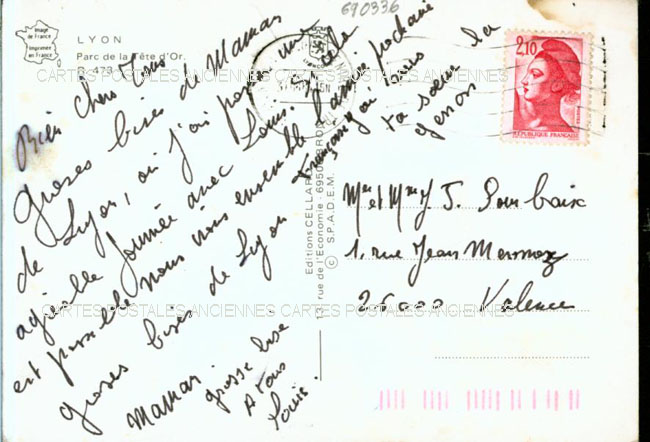 690336
Image
de France
Imprimée
en France
LYON
Parc de la Tête d'Or.
R 473
Bien chers Tous
grosses bises de Maman
de Lyon, où j'ai pu
agréable journée avec Louis. Si cela
est possible nous irons ensemble l'année prochaine
grosses bises de Lyon
Maman.
grosse bise
à tous
Louis.
François
ta sœur
Editions CELLARD
113, rue de l'Economie - 69500 BRON
© S.P.A.D.E.M.
2,10
REPUBLIQUE FRANÇAISE
Mr et Mme J. Pourbaix
1, rue Jean Mermoz
26000 Valence
CARTES POSTALES ANCIENNES CARTES POSTALES ANCIENNES
CARTES POSTALES ANCIENNES CARTES POSTALES ANCIENNES